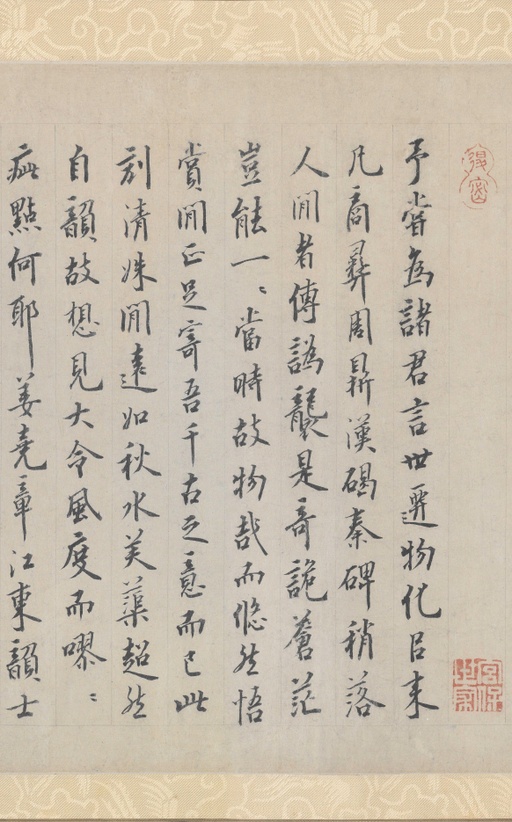 予嘗為諸君言世遷物化㠯來
凡商彝周鼎漢碣秦碑稍落
人間者傳譌襲是奇詭蒼茫
豈能一〻當時故物哉而偬然悟
賞閒正足寄吾千古之意而已此
刻清姝閒遠如秋水美蕖超然
自韻故想見大令風度而嘐〻
疵點何耶姜堯章江東韻士
宮保世家